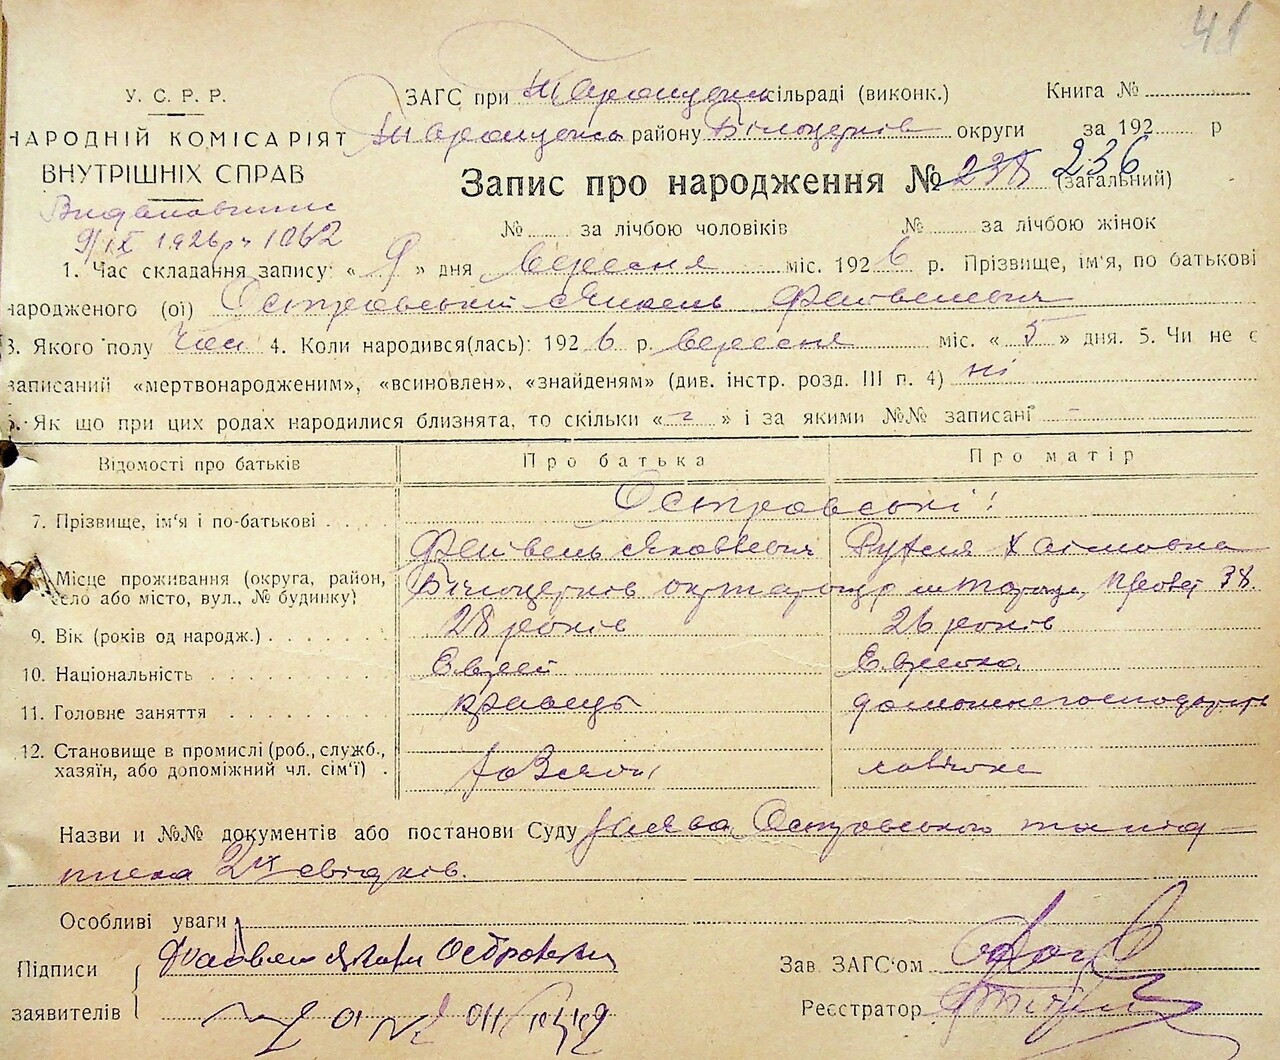 41
У. С. Р. Р.
НАРОДНІЙ КОМІСАРІЯТ
ВНУТРІШНІХ СПРАВ
ЗАГС при Таращансь сільраді (виконк.) Книга №
Таращансь району Білоцерків округи за 192 р
Запис про народження № 238 236 (загальний)
9/IX 1926 р № 1062
№ за лічбою чоловіків № за лічбою жінок
1. Час складання запису: « 9 » дня вересня міс. 192 6 р. Прізвище, ім'я, по батькові
народженого (ої) Островський Янкель Файвелевич
3. Якого полу Чол 4. Коли народився(лась): 192 6 р. вересня міс. « 5 » дня. 5. Чи не є
записаний «мертвонародженим», «всиновлен», «знайденям» (див. інстр. розд. III п. 4) ні
Як що при цих родах народилися близнята, то скільки « - » і за якими №№ записані -
Відомості про батьків Про батька Про матір
7. Прізвище, ім'я і по-батькові Островські
Файвель Янкелевич Рухля Хаімовна
Місце проживання (округа, район,
село або місто, вул., № будинку) Білоцерків окр. 38.
9. Вік (років од народж.) 28 років 26 років
10. Національність Єврей Єврейка
11. Головне заняття кравець
12. Становище в промислі (роб., служб.,
хазяїн, або допоміжний чл. сім'ї)
Назви и №№ документів або постанови Суду заява Островського та під-
писка 2х свідків.
Особливі уваги
Підписи
заявителів
Зав. ЗАГС'ом
Реєстратор